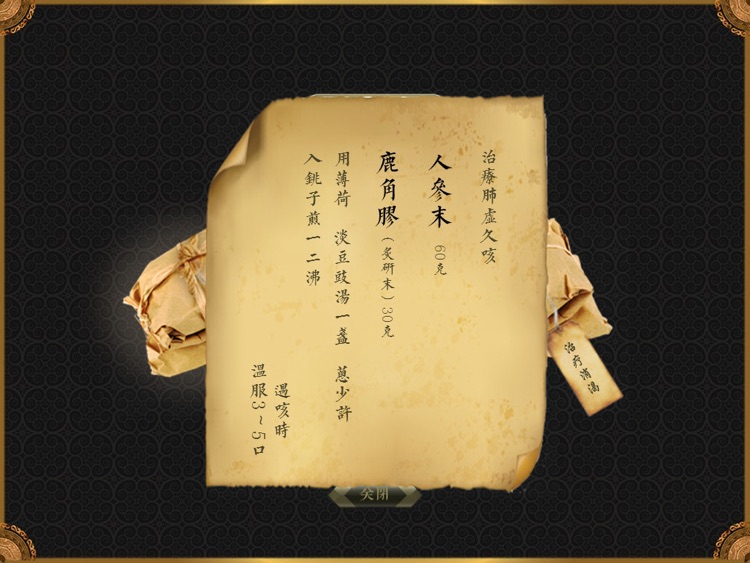 治療肺虛久咳
人參末 60克
鹿角膠（炙研末）30克
用薄荷 淡豆豉湯一盞 蔥少許
入銚子煎一二沸
遇咳時
溫服3~5口
治疗消渴
关闭